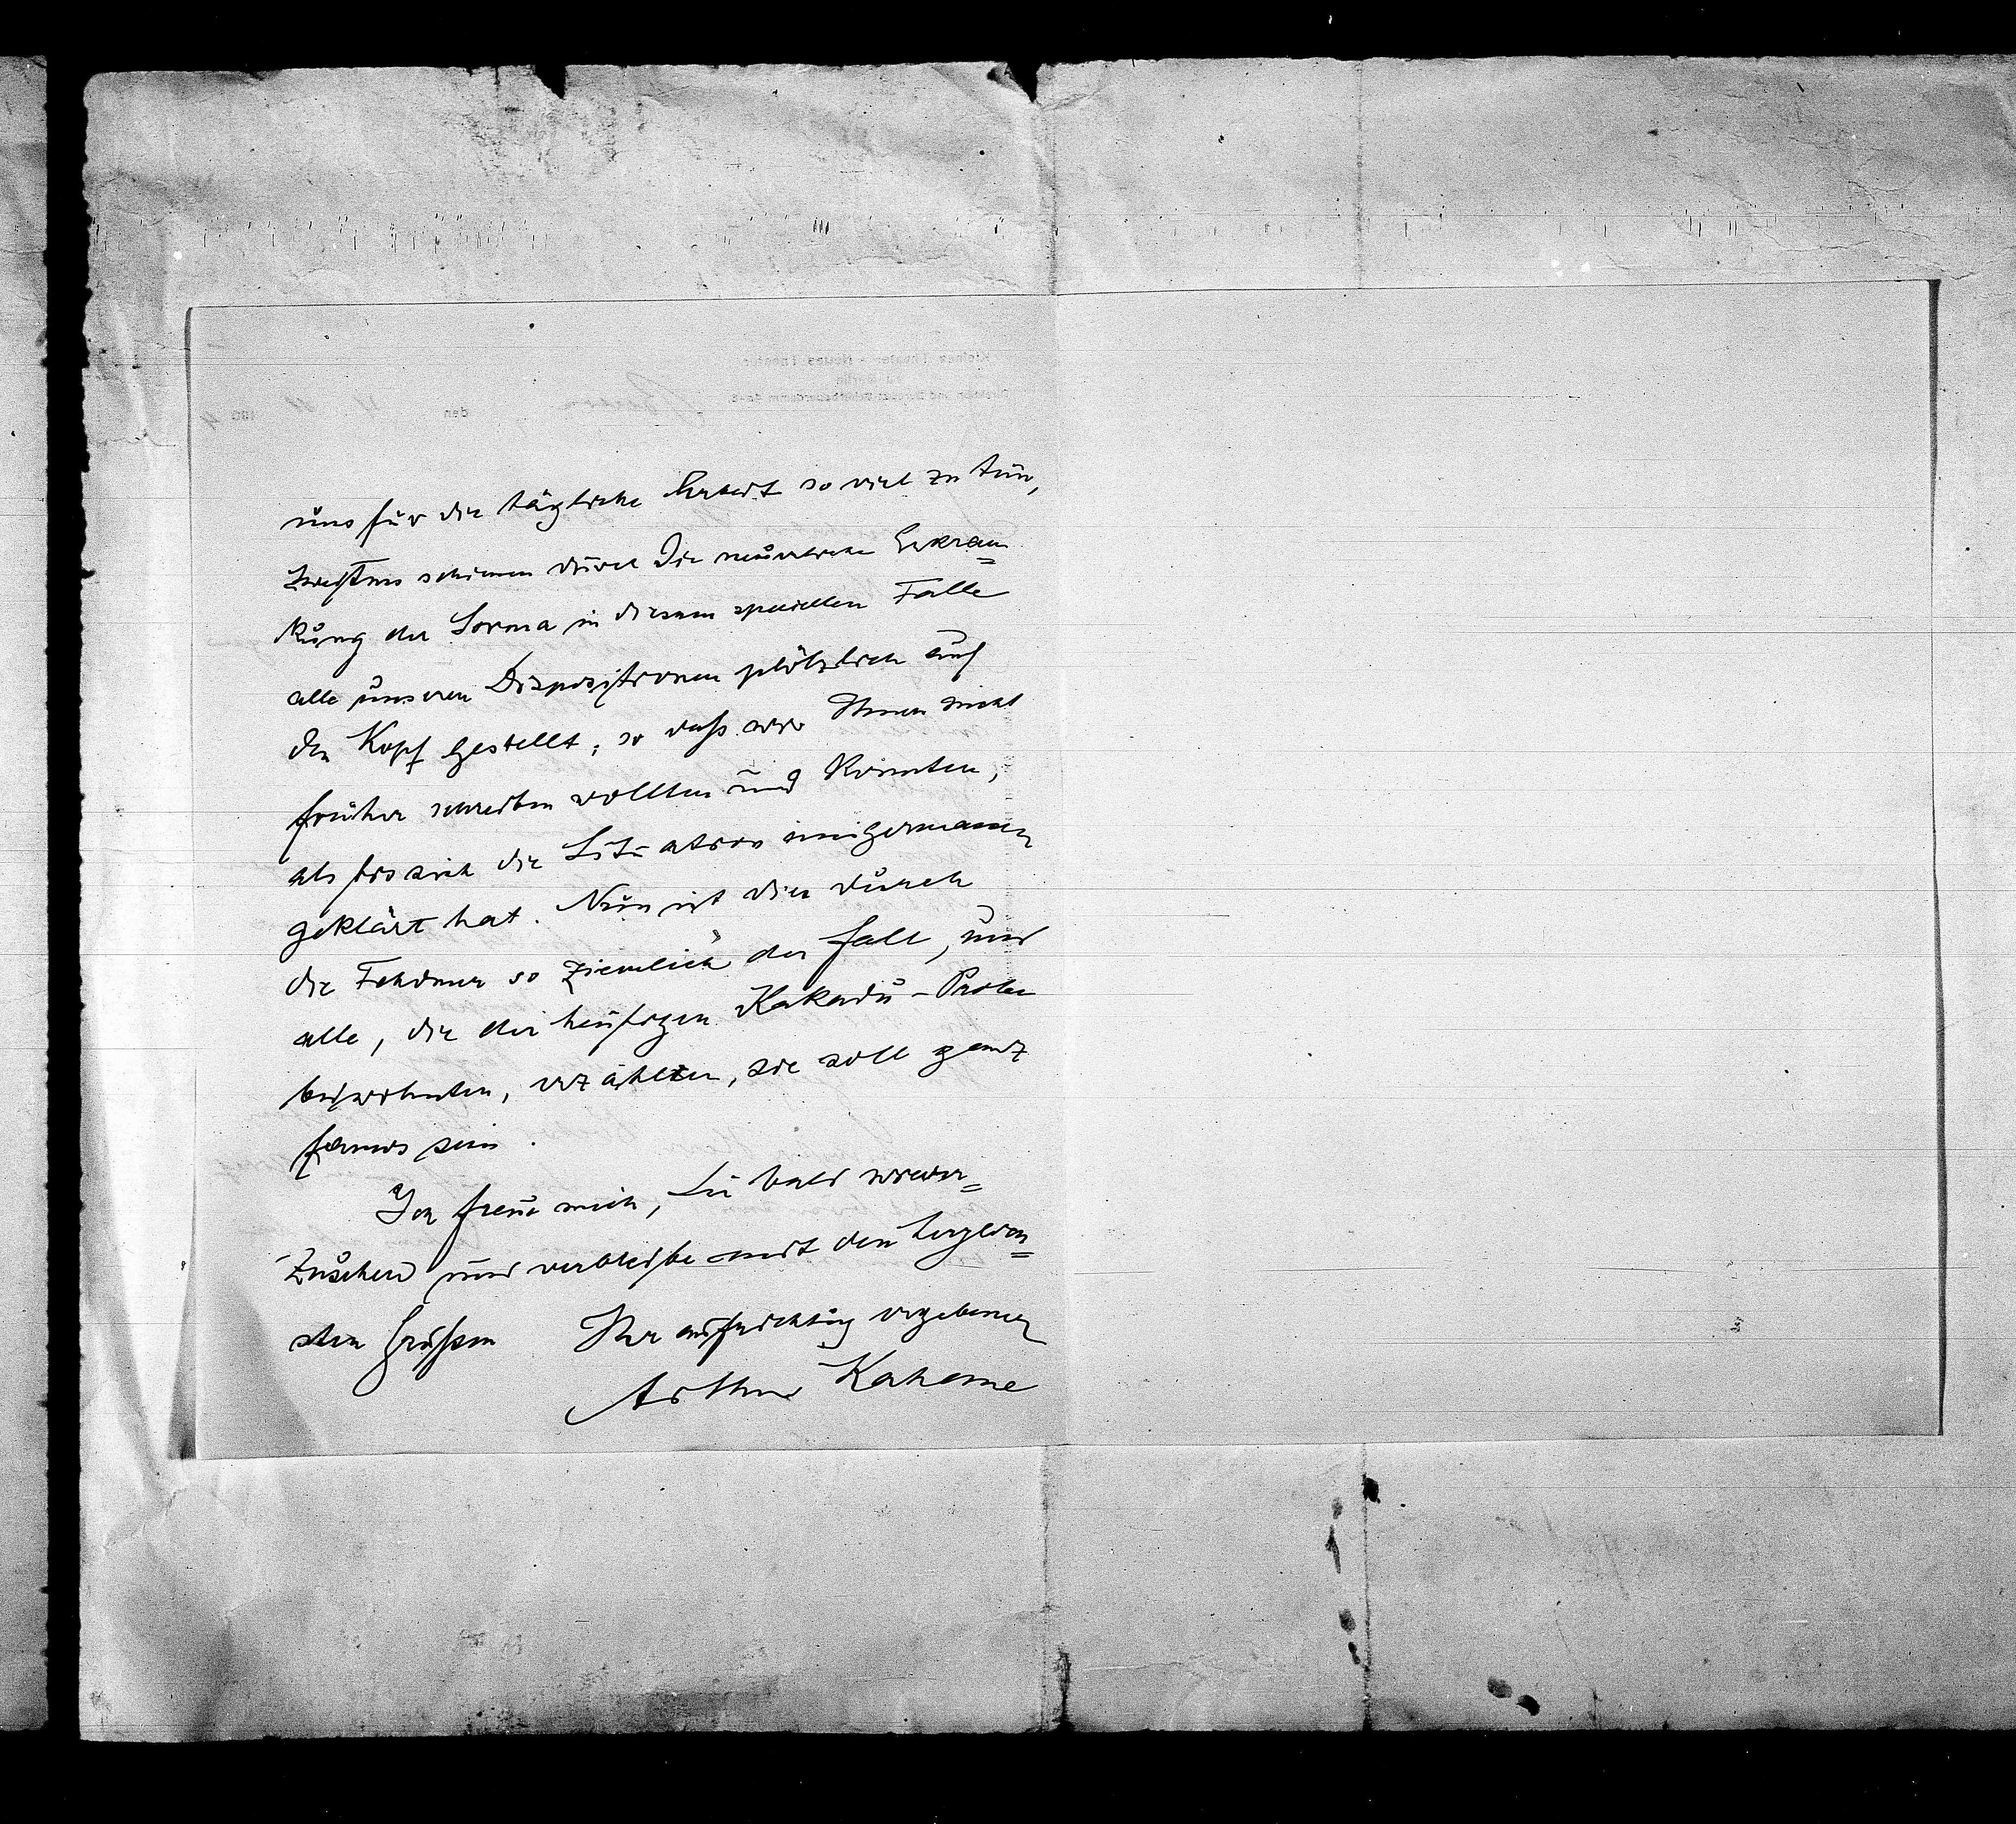 uns für die tägliche Arbeit so viel zu tun,
zweitens schienen durch die neuerliche Erkran=
kung der Sorma in diesem speciellen Falle
alle unseren Dispositionen plötzlich auf
den Kopf gestellt, so daß wir Ihnen nicht
früher schreiben wollten und konnten,
als bis sich die Situation einigermassen
geklärt hat. Nun ist dies durch
die Fehdmer so ziemlich der Fall, und
alle, die der heutigen Kakadu-Probe
beiwohnten, erzählten, sie soll ganz
famos sein.
Ich freue mich, Sie bald wieder=
zusehen und verbleibe mit den herzlich=
sten Grüßen Ihr aufrichtig ergebener
Arthur Kahane